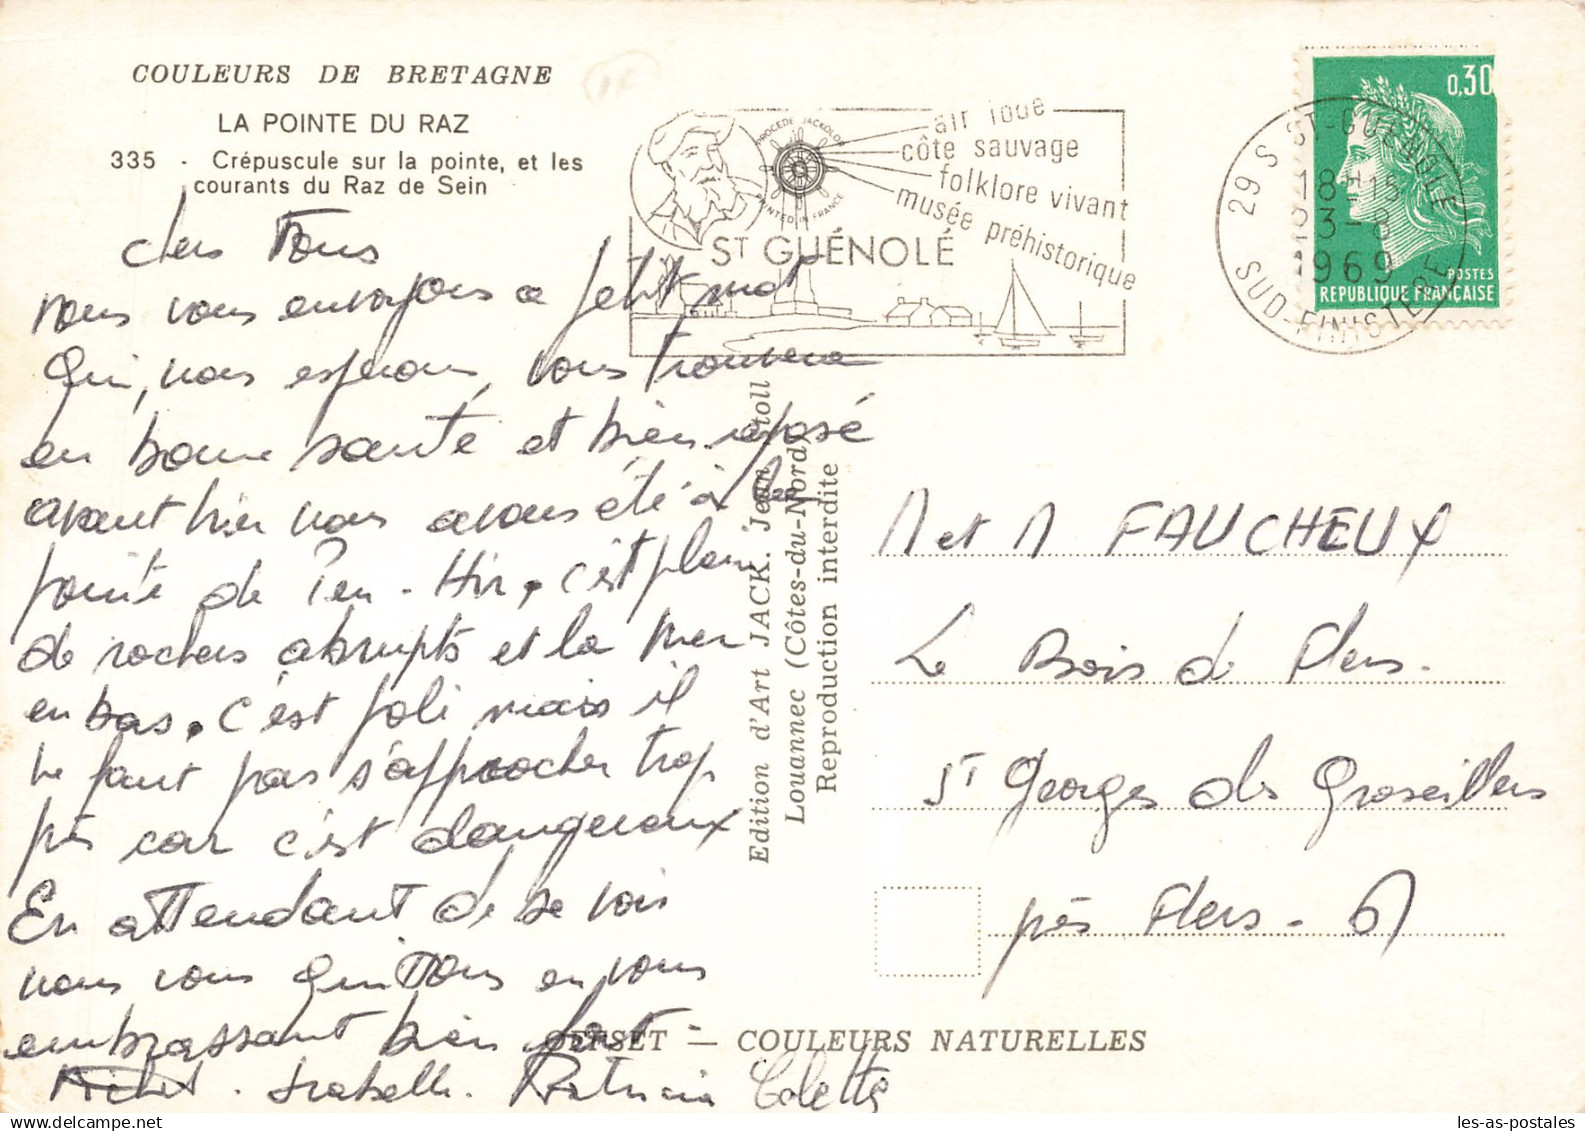 COULEURS DE BRETAGNE
LA POINTE DU RAZ
335 - Crépuscule sur la pointe, et les
courants du Raz de Sein
chers Tous
nous vous envoyons ce petit mot
qui, nous espérons, vous trouvera
en bonne santé et bien reposé
avant hier nous avons été à la
pointe de Pen-Hir, c'est plein
de rochers abrupts et la mer
en bas. c'est joli mais il
ne faut pas s'approcher trop
près car c'est dangereux
En attendant de se voir
nous vous quittons en vous
embrassant bien fort -
Michel. Isabelle. Patricia Colette
PROCÉDÉ JACKOLOR
PRINTED IN FRANCE
air iodé
côte sauvage
folklore vivant
musée préhistorique
ST GUÉNOLÉ
29 S ST-GUENOLE
18H15
23-8
1969
SUD-FINISTERE
0,30
POSTES
REPUBLIQUE FRANÇAISE
Edition d'Art JACK. Jean Stoll
Louannec (Côtes-du-Nord)
Reproduction interdite
M et M FAUCHEUX
Le Bois de Flers.
St Georges des Groseillers
près Flers - 61
OFFSET — COULEURS NATURELLES
les-as-postales